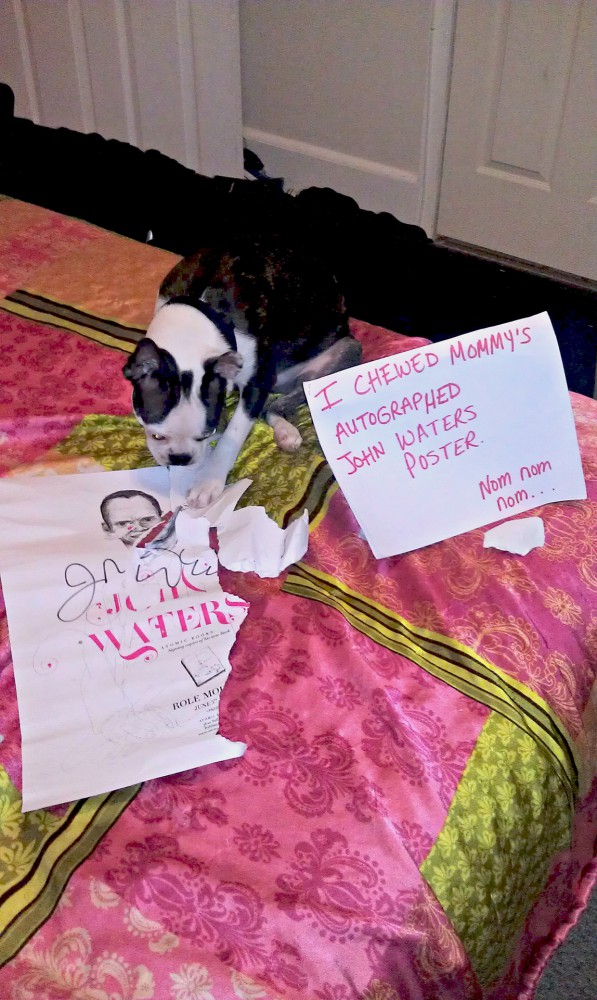 I CHEWED MOMMY'S
AUTOGRAPHED
JOHN WATERS
POSTER.
Nom nom
nom...
JOHN
WATERS
ATOMIC BOOKS
ROLE MO
JUNE